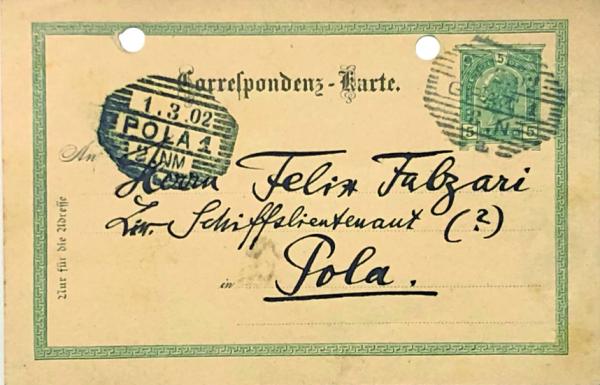 Correspondenz-Karte.
5
5 5
1.3.02
POLA 1
2/NM
An
Herrn Felix Falzari
Schiffslieutenant (?)
in Pola.
Nur für die Adresse